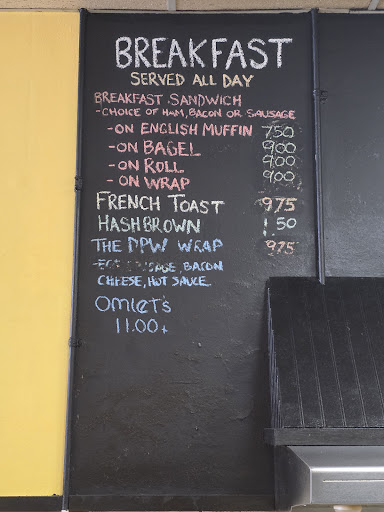 BREAKFAST
SERVED ALL DAY
BREAKFAST SANDWICH
-CHOICE OF HAM, BACON OR SAUSAGE
-ON ENGLISH MUFFIN 7.50
-ON BAGEL 9.00
-ON ROLL 9.00
-ON WRAP 9.00
FRENCH TOAST 9.75
HASHBROWN 1.50
THE PPW WRAP 9.25
BACON
CHEESE, HOT SAUCE
OMLET'S
11.00+